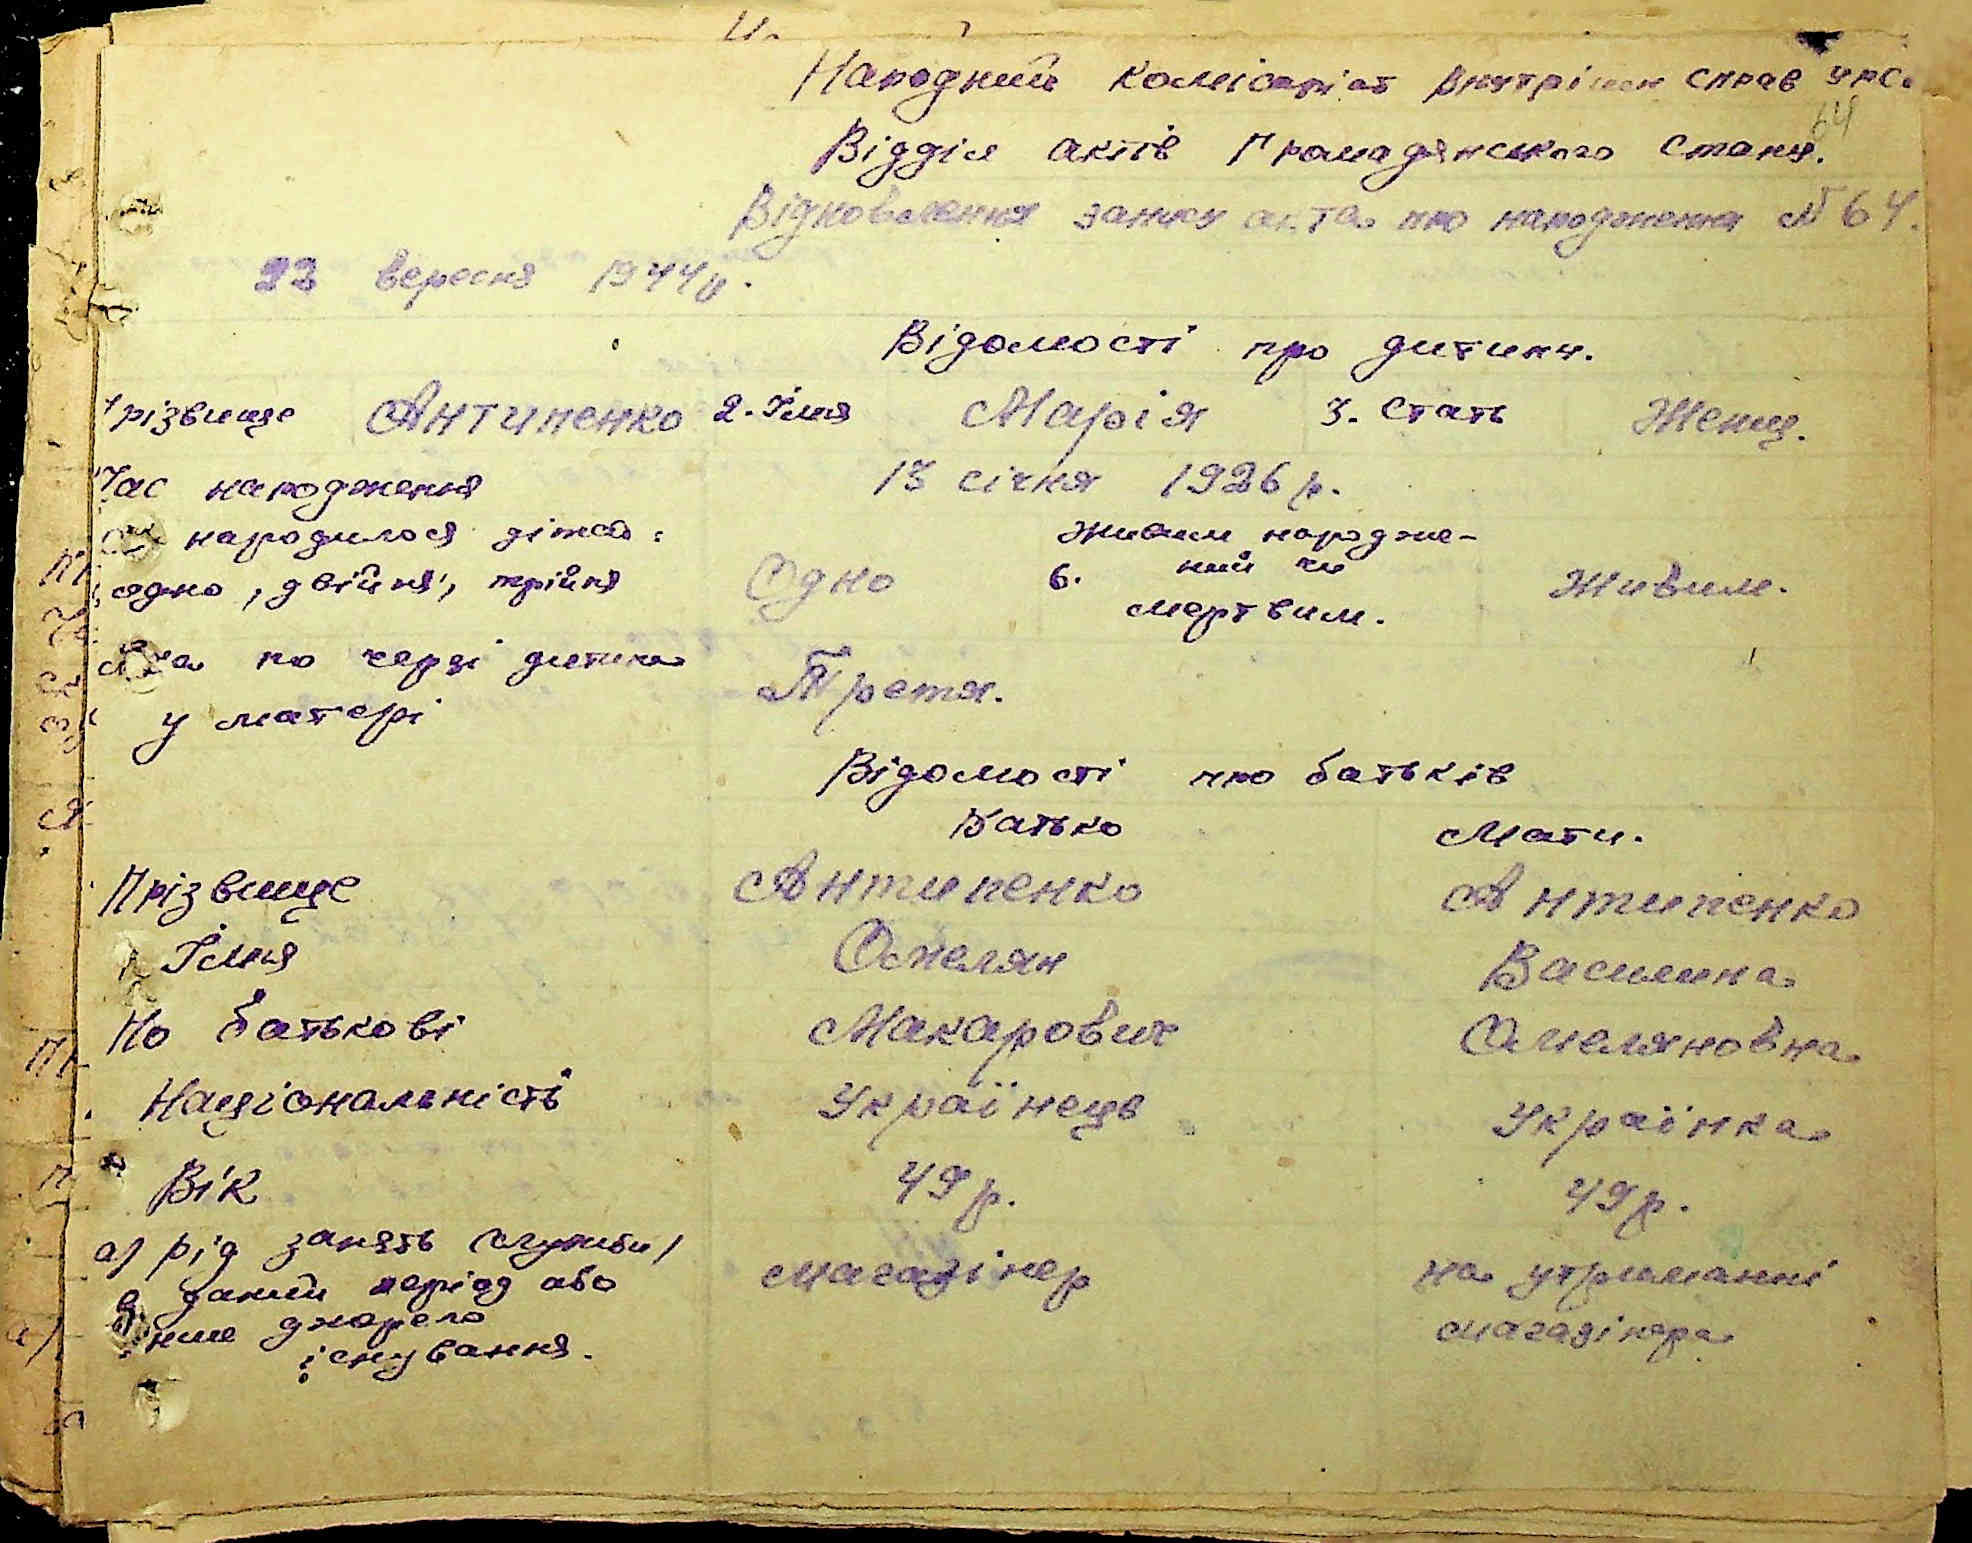 Народний Комісаріат Внутрішн справ УРС
64
Відділ актів Громадянського Стану.
Відновлення запису акта про народження № 64.
22 вересня 1944 р.
Відомості про дитину.
Прізвище Антипенко 2. Імя Марія 3. Стать Женщ.
Час народження 13 січня 1926 р.
народилося дітей: Живим народже-
одно, двійня, трійня Одно 6. ний чи Живим.
мертвим.
Яка по черзі дитина Третя.
у матері
Відомості про батьків
Батько Мати.
Прізвище Антипенко Антипенко
Імя Омелян Василина
По батькові Макарович Омеляновна
Національність Українець Українка
Вік 49 р. 49 р.
а) рід занять (служби) магазінер на утриманні
в даний період або магазінера
інше джерело
існування.